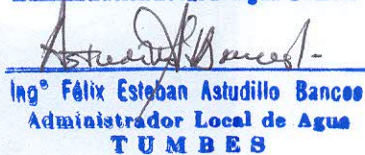 Astudillo Bances
Ingº Félix Esteban Astudillo Bances
Administrador Local de Agua
TUMBES